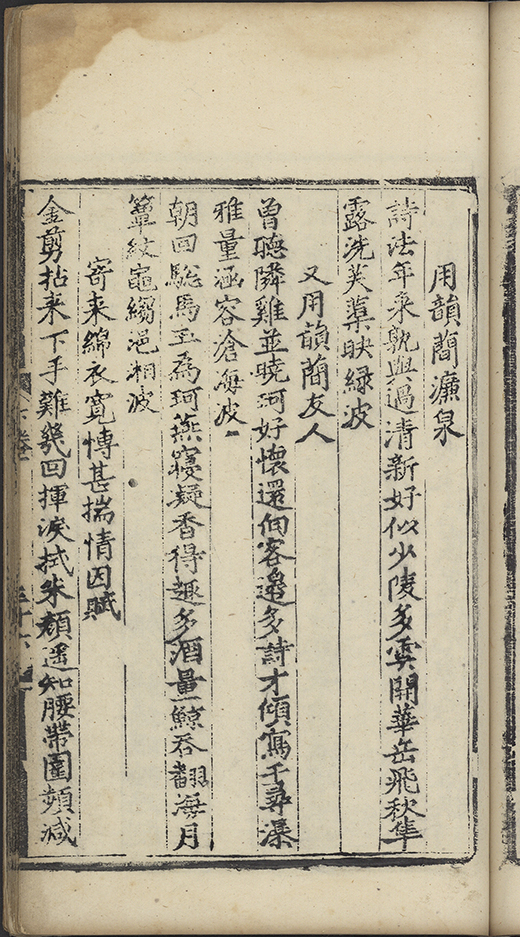 用韻簡濂泉
詩法年来孰與過清新好似少陵多雲開華岳飛秋隼
露洗芙蕖映緑波
又用韻簡友人
曾聴隣雞並曉珂好懷還向客邊多詩才傾寫千尋瀑
雅量涵容滄海波
朝回驄馬玉為珂燕寢疑香得趣多酒量鯨吞翻海月
簟紋龜縐浥湘波
寄来綿衣寬愽甚揣情因賦
金剪拈来下手難幾回揮淚拭朱顔遥知腰帶圍頻減